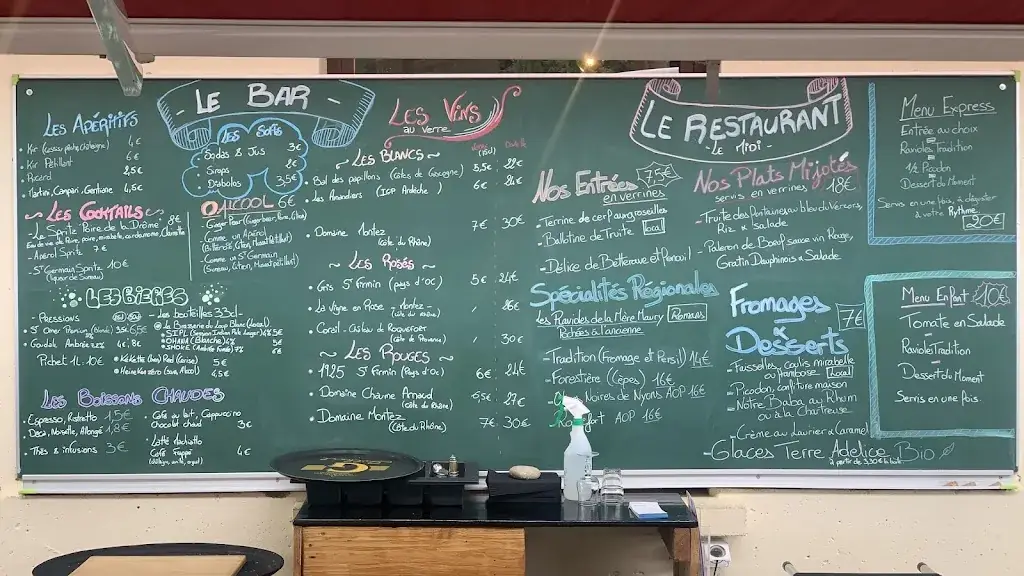 LE BAR
LES APÉRITIFS
- Kir 4€
- Kir Pétillant 6€
- Ricard 2,5€
- Martini, Campari, Gentiane 4,5€
LES SOFTS
Sodas & Jus 3€
Sirops 2€
Diabolos 3,5€
~ LES COCKTAILS
- Le Spritz Poire de la Drôme 8€
- Apérol Spritz 7€
- St Germain Spritz 10€
O ALCOOL 6€
- Comme un Apérol
- Comme un St Germain
LES BIERES
- Pressions
St Omer 3,5€ 6,5€
Goudale Ambrée 4€ 8€
Pichet 1L 10€
- Les bouteilles 33cl -
La Brasserie du Loup Blanc (local)
OHARA (Blanche) 4% 5€
SMOKE 7% 6€
Red (Cerise) 5€
4,5€
LES BOISSONS CHAUDES
Espresso, Ristretto 1,5€
Deca, Noisette, Allongé 1,8€
Thés & infusions 3€
Café au lait, Cappuccino
Chocolat chaud 3€
Latte Macchiato
Café frappé 4€
LES VINS
au verre
~ LES BLANCS ~
- Bal des papillons (Côtes de Gascogne) 5,5€ 22€
(IGP Ardèche) 6€ 24€
- Domaine Montez 7€ 30€
(Côte du Rhône)
~ LES ROSÉS
- Gris St Firmin (Pays d'Oc) 5€ 24€
- La Vigne en Rose - Montez - 26€
(Côte du Rhône)
(Côte de Provence) 30€
~ LES ROUGES ~
- 1125 St Firmin (Pays d'Oc) 6€ 24€
- Domaine Chaume Arnaud 6,5€ 27€
(Côte du Rhône)
- Domaine Montez 7€ 30€
(Côte du Rhône)
LE RESTAURANT
- LE MIDI -
NOS Entrées 7,5€
en verrines
- Terrine de cerf aux groseilles
- Ballotine de Truite local
- Délice de Betterave et Fenouil -
NOS Plats Mijotés
servis en verrines 18€
- Truite des Fontaines au bleu du Vercors,
Riz & Salade
- Paleron de Bœuf sauce vin Rouge,
Gratin Dauphinois & Salade
Spécialités Régionales
Les Ravioles de la Mère Maury Romans
Pochées à l'ancienne
- Tradition (Fromage et Persil) 14€
- Forestière (Cèpes) 16€
Noires de Nyons AOP 16€
AOP 16€
Fromages
&
Desserts 7€
- Faisselles, coulis mirabelle
ou framboise local
- Picodon, confiture maison
- Notre Baba au Rhum
ou à la Chartreuse
- Crème au Laurier & Caramel
- Glaces Terre Adélice Bio
à partir de 3,50€ la boule
Menu Express
Entrée au choix
Ravioles Tradition
1/2 Picodon
Dessert du Moment
Servis en une fois, à déguster
à votre Rythme
20€
Menu Enfant 10€
Tomate en Salade
Ravioles Tradition
Dessert du Moment
Servis en une fois.